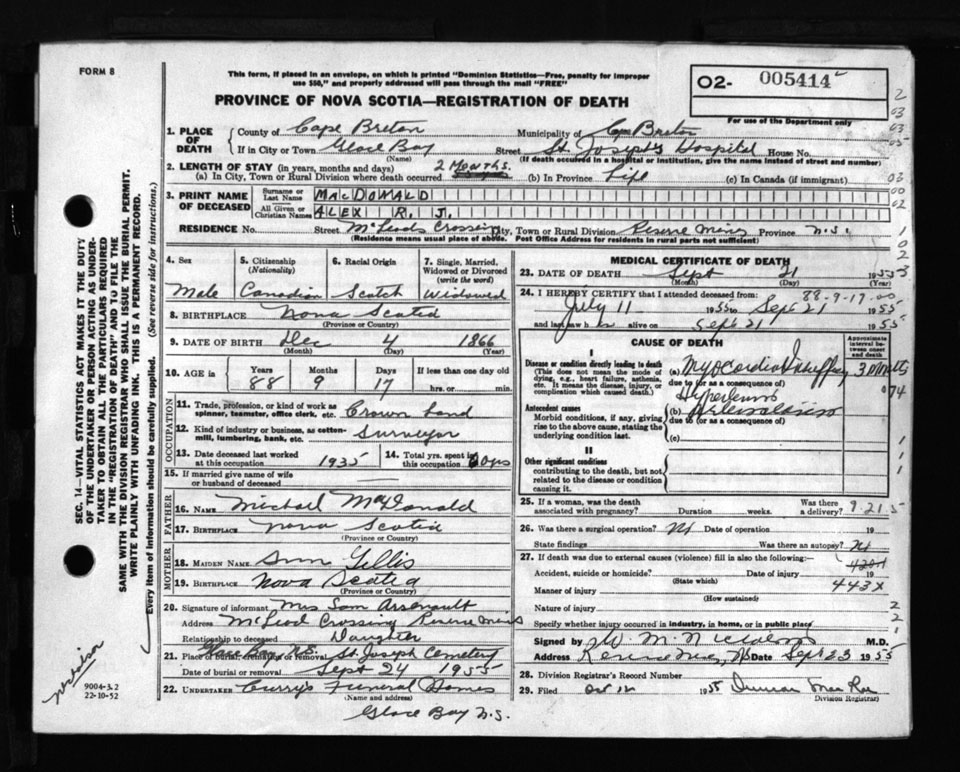 FORM 8
This form, if placed in an envelope, on which is printed "Dominion Statistics—Free, penalty for improper
use $50," and properly addressed will pass through the mail "FREE"
PROVINCE OF NOVA SCOTIA—REGISTRATION OF DEATH
O2- 005414
For use of the Department only
1. PLACE OF DEATH { County of Cape Breton Municipality of Cape Breton
If in City or Town Glace Bay Street St. Joseph's Hospital House No.
(Name) (If death occurred in a hospital or institution, give the name instead of street and number)
2. LENGTH OF STAY (in years, months and days) 2 Months.
(a) In City, Town or Rural Division where death occurred (b) In Province Life (c) In Canada (if immigrant)
3. PRINT NAME OF DECEASED
Surname or Last Name MACDONALD
All Given or Christian Names ALEX R. J.
RESIDENCE No. Street McLeods Crossing City, Town or Rural Division Reserve Mines Province N.S.
(Residence means usual place of abode. Post Office Address for residents in rural parts not sufficient)
4. Sex 5. Citizenship (Nationality) 6. Racial Origin 7. Single, Married, Widowed or Divorced (write the word)
Male Canadian Scotch Widowed
8. BIRTHPLACE Nova Scotia
(Province or Country)
9. DATE OF BIRTH Dec 4 1866
(Month) (Day) (Year)
10. AGE in Years Months Days If less than one day
88 9 17 hrs. or min.
OCCUPATION
11. Trade, profession, or kind of work as spinner, teamster, office clerk, etc. Crown Land
12. Kind of industry or business, as cotton-mill, lumbering, bank, etc. Surveyor
13. Date deceased last worked at this occupation 1935 14. Total yrs. spent in this occupation
15. If married give name of wife or husband of deceased
FATHER
16. NAME Michael MacDonald
17. BIRTHPLACE Nova Scotia
(Province or Country)
MOTHER
18. MAIDEN NAME Ann Gillis
19. BIRTHPLACE Nova Scotia
(Province or Country)
20. Signature of informant Mrs Sam Arsenault
Address McLeod Crossing Reserve Mines
Relationship to deceased Daughter
21. Place of burial, cremation or removal St. Joseph Cemetery
Glace Bay N.S.
Date of burial or removal Sept 24 1955
22. UNDERTAKER Curry's Funeral Homes
(Name and address)
Glace Bay N.S.
MEDICAL CERTIFICATE OF DEATH
23. DATE OF DEATH Sept 21 1955
(Month) (Day) (Year)
88-9-17-00
24. I HEREBY CERTIFY that I attended deceased from:
July 11 1955 to Sept 21 1955
and last saw h alive on Sept 21 1955
CAUSE OF DEATH
Approximate interval between onset and death
I
Disease or condition directly leading to death
(This does not mean the mode of dying, e.g., heart failure, asthenia, etc. It means the disease, injury, or complication which caused death.)
(a) 3 minutes
due to (or as a consequence of)
Antecedent causes
Morbid conditions, if any, giving rise to the above cause, stating the underlying condition last.
(b)
due to (or as a consequence of)
(c)
II
Other significant conditions
contributing to the death, but not related to the disease or condition causing it.
25. If a woman, was the death associated with pregnancy? Duration weeks. Was there a delivery? 9-21-5
26. Was there a surgical operation? Date of operation 19
State findings Was there an autopsy?
27. If death was due to external causes (violence) fill in also the following:
Accident, suicide or homicide? Date of injury 19
(State which)
Manner of injury 443X
(How sustained)
Nature of injury
Specify whether injury occurred in industry, in home, or in public place
Signed by M.D.
Address Reserve Mines, NS Date Sept 23 1955
28. Division Registrar's Record Number
29. Filed Oct 12 1955 Duncan MacRae
Division Registrar
SEC. 14—VITAL STATISTICS ACT MAKES IT THE DUTY
OF THE UNDERTAKER OR PERSON ACTING AS UNDER-
TAKER TO OBTAIN ALL THE PARTICULARS REQUIRED
IN THE "REGISTRATION OF DEATH" AND TO FILE THE
SAME WITH THE DIVISION REGISTRAR WHO SHALL ISSUE THE BURIAL PERMIT.
WRITE PLAINLY WITH UNFADING INK. THIS IS A PERMANENT RECORD.
Every item of information should be carefully supplied. (See reverse side for instructions.)
9004-3.2
22-10-52